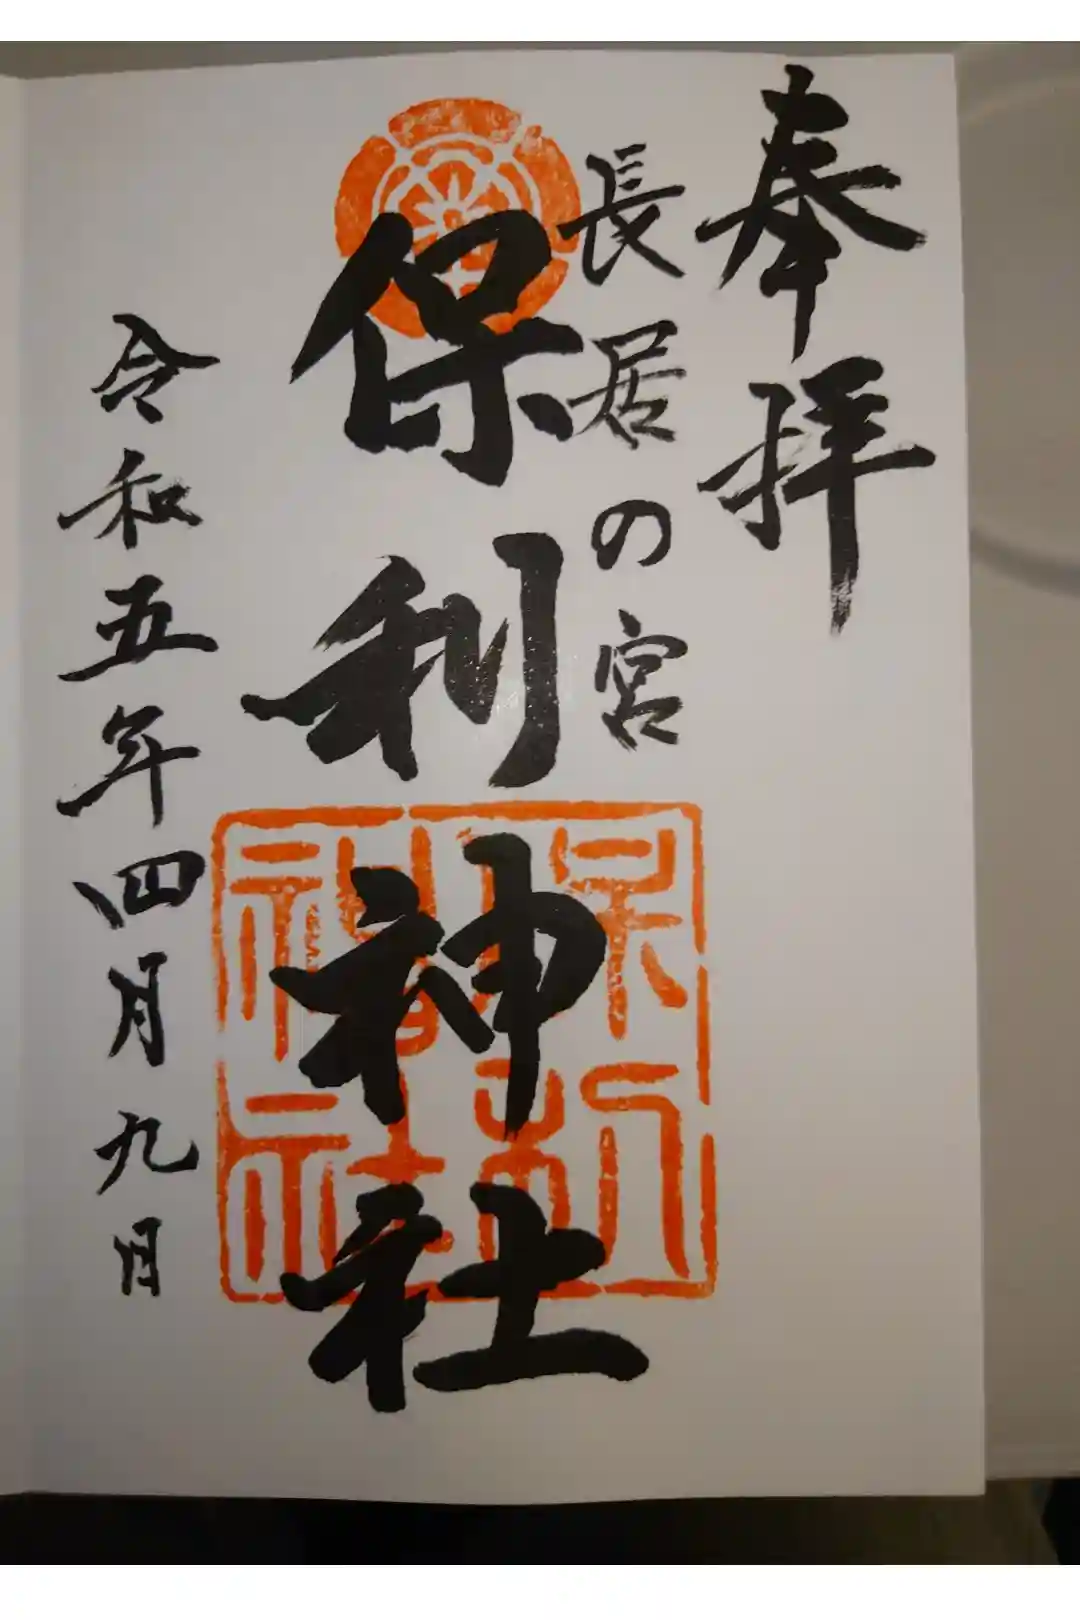 奉拝
長居の宮
保利神社
令和五年四月九日
保利神社